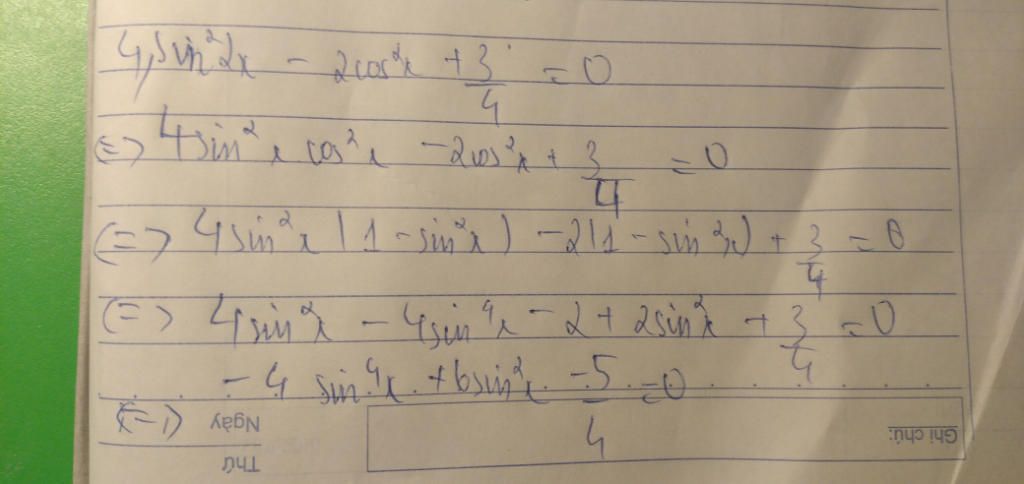 4 sin²2x - 2cos²x + 3/4 = 0
<=> 4sin²x cos²x - 2cos²x + 3/4 = 0
<=> 4sin²x (1 - sin²x) - 2(1 - sin²x) + 3/4 = 0
<=> 4sin²x - 4sin⁴x - 2 + 2sin²x + 3/4 = 0
<=> -4 sin⁴x + 6sin²x - 5/4 = 0
Ghi chú:
Ngày
Thứ